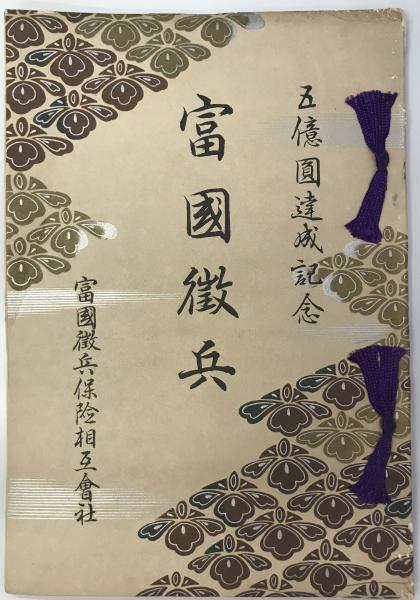 五億圓達成記念
富國徴兵
富國徴兵保険相互會社